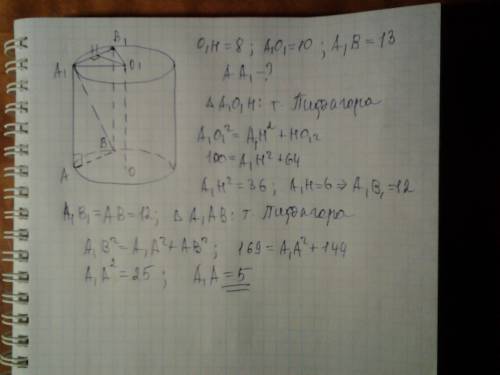 B₁
H
A₁
O₁
B
A
O
O₁H = 8 ; A₁O₁ = 10 ; A₁B = 13
AA₁ - ?
△ A₁O₁H : т. Пифагора
A₁O₁² = A₁H² + HO₁²
100 = A₁H² + 64
A₁H² = 36 ; A₁H = 6 ⇒ A₁B₁ = 12
A₁B₁ = AB = 12 ; △ A₁AB : т. Пифагора
A₁B² = A₁A² + AB² ; 169 = A₁A² + 144
A₁A² = 25 ; A₁A = 5